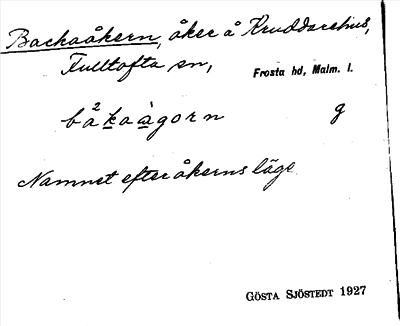 Backaåkern, åker å Kruddarehus,
Fulltofta sn,
Frosta hd, Malm. l.
bå²kaàgorn g
Namnet efter åkerns läge
GÖSTA SJÖSTEDT 1927